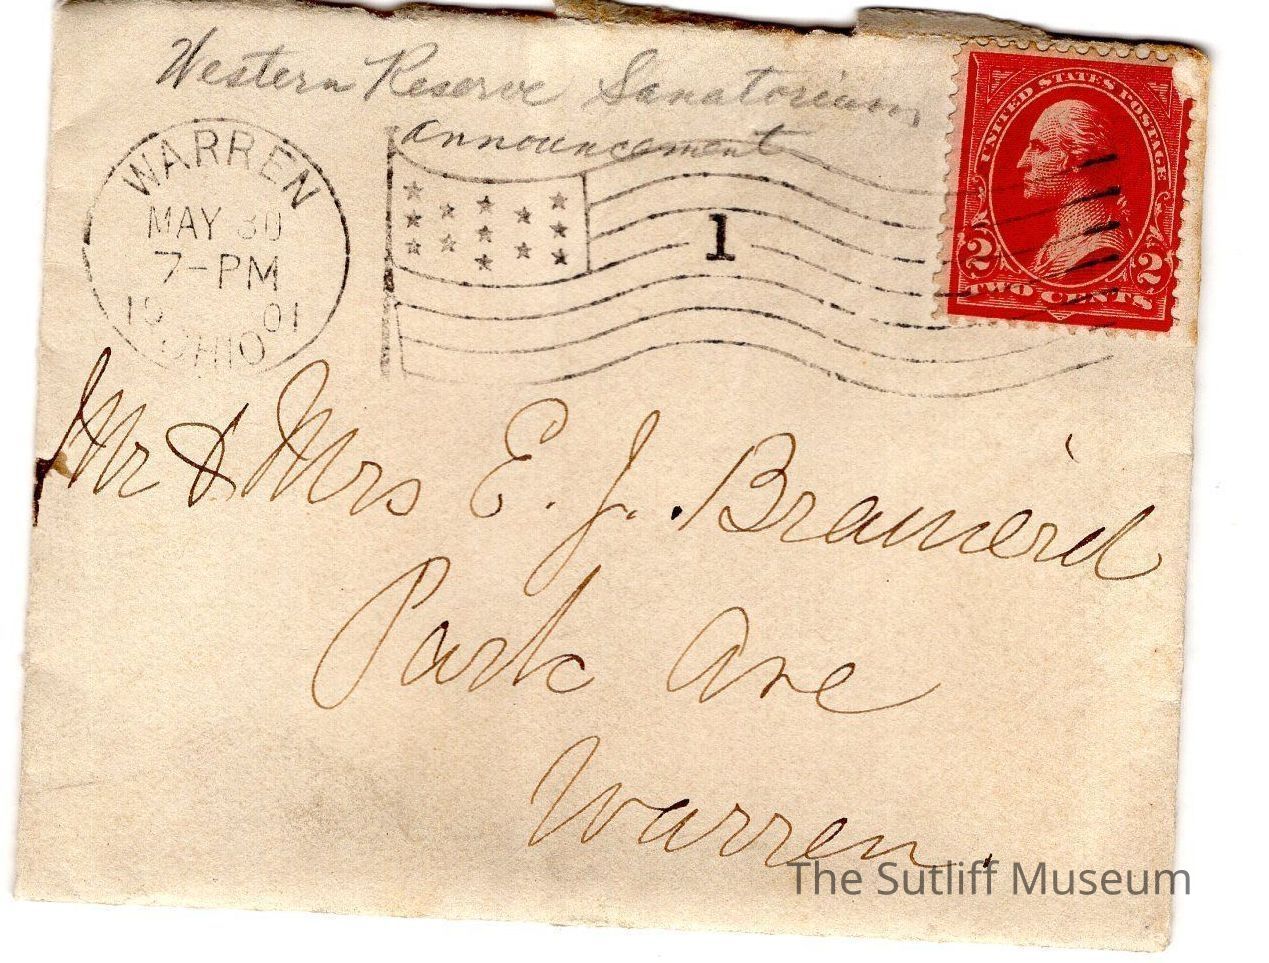 Western Reserve Sanatorium
announcement
WARREN
MAY 30
7-PM
1901
OHIO
1
UNITED STATES POSTAGE
2 2
TWO CENTS
Mr & Mrs E. J. Brainerd
Park Ave
Warren.
The Sutliff Museum